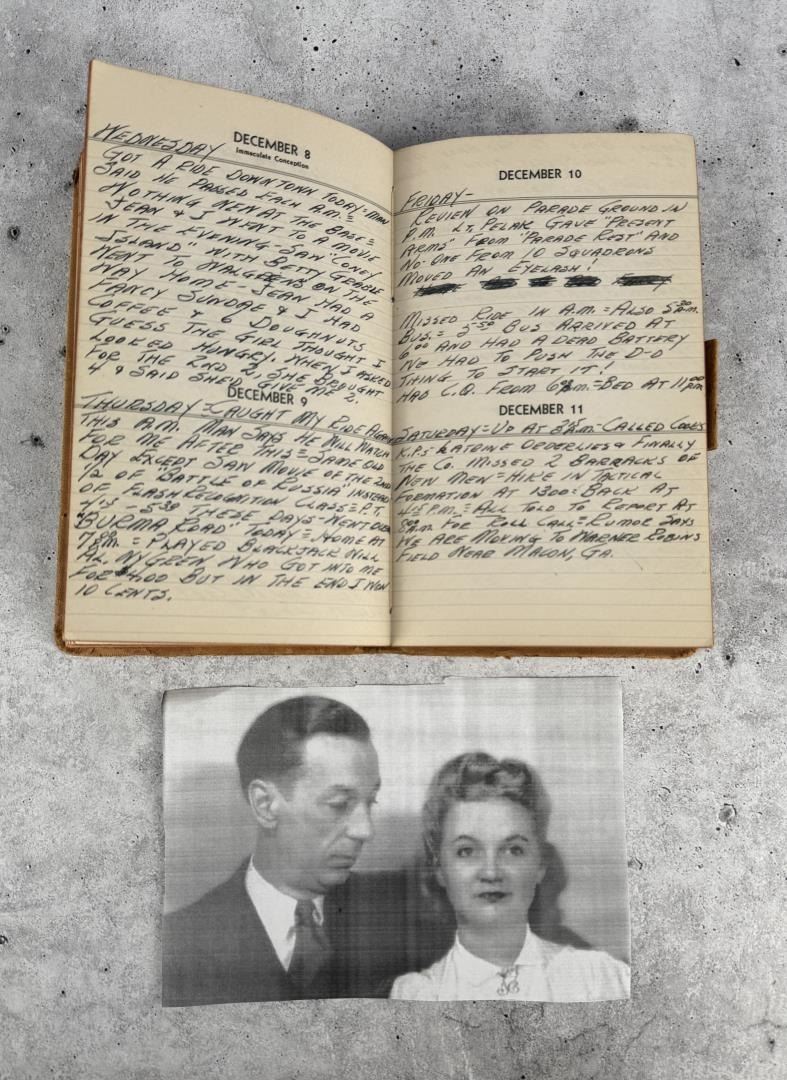 WEDNESDAY
DECEMBER 8
Immaculate Conception
GOT A RIDE DOWNTOWN TODAY - MAN
SAID HE PASSED EACH A.M. =
NOTHING NEW AT THE BASE =
JEAN & I WENT TO A MOVIE
IN THE EVENING - SAW "CONEY
ISLAND" WITH BETTY GRABLE
WENT TO WALGREENS ON THE
WAY HOME - JEAN HAD A
FANCY SUNDAE & I HAD
COFFEE & 6 DOUGHNUTS
GUESS THE GIRL THOUGHT I
LOOKED HUNGRY. WHEN I ASKED
FOR THE 2ND 2 SHE BROUGHT
4 & SAID SHED GIVE ME 2.
DECEMBER 9
THURSDAY = CAUGHT MY RIDE AGAIN
THIS A.M. MAN SAYS HE WILL WATCH
FOR ME AFTER THIS = SAME OLD
DAY EXCEPT SAW MOVIE OF THE 2ND
1/2 OF "BATTLE OF RUSSIA" INSTEAD
OF FLASH RECOGNITION CLASS = P.T.
4:15 - 5:30 THESE DAYS - WENT OVER
"BURMA ROAD" TODAY = HOME AT
7 P.M. = PLAYED BLACKJACK WILL
AL. NYGREN WHO GOT INTO ME
FOR $4.00 BUT IN THE END I WON
10 CENTS.
DECEMBER 10
FRIDAY -
REVIEW ON PARADE GROUND IN
P.M. LT. PELAK GAVE "PRESENT
ARMS" FROM "PARADE REST" AND
NO-ONE FROM 10 SQUADRONS
MOVED AN EYELASH!
MISSED RIDE IN A.M. = ALSO 5:30 A.M.
BUS = 5:50 BUS ARRIVED AT
6:00 AND HAD A DEAD BATTERY
WE HAD TO PUSH THE D-D
THING TO START IT!
HAD C.Q. FROM 6 P.M. = BED AT 11:00 PM
DECEMBER 11
SATURDAY = UP AT A.M. - CALLED COOKS
K.P.s LATRINE ORDERLIES & FINALLY
THE CO. MISSED 2 BARRACKS OF
NEW MEN = HIKE IN TACTICAL
FORMATION AT 1300 = BACK AT
4:15 P.M. = ALL TOLD TO REPORT AT
8:00 A.M FOR ROLL CALL = RUMOR SAYS
WE ARE MOVING TO WARNER ROBINS
FIELD NEAR MACON, GA.